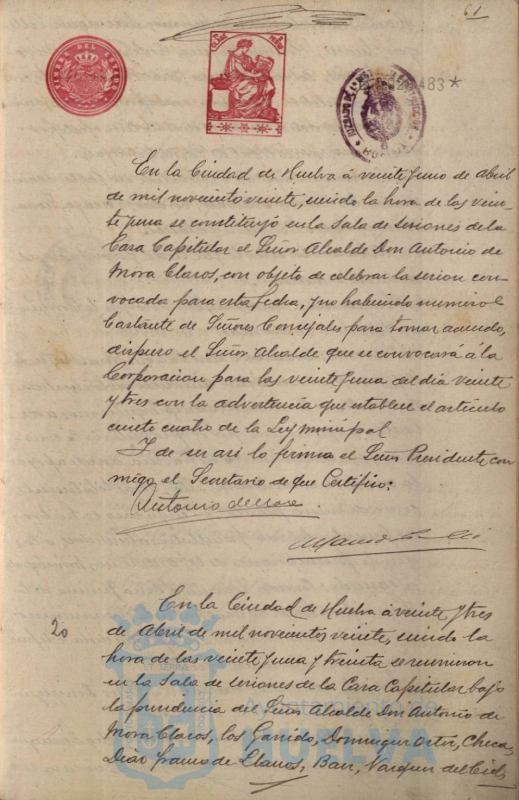 61
TIMBRE DEL ESTADO
483*
En la Ciudad de Huelva á veinte y uno de Abril
de mil novecientos veinte, siendo la hora de las vein-
te y una se constituyó en la Sala de sesiones de la
Casa Capitular el Señor Alcalde Don Antonio de
Mora Claros, con objeto de celebrar la sesion con
vocada para esta fecha, y no habiendo numero
bastante de Señores Concejales para tomar acuerdo,
dispuso el Señor Alcalde que se convocará á la
Corporacion para las veinte y una del dia veinte
y tres con la advertencia que establece el articulo
ciento cuatro de la Ley municipal
Y de ser asi lo firma el Señor Presidente con
migo el Secretario de que Certifico:
Antonio de Mora
20
En la Ciudad de Huelva á veinte y tres
de Abril de mil novecientos veinte, siendo la
hora de las veinte y una y treinta se reunieron
en la Sala de sesiones de la Casa Capitular bajo
la presidencia del Señor Alcalde Don Antonio de
Mora Claros, los Garrido, Dominguez Ortiz, Checa,
Diaz Franco de Llanos, Vazquez del Cid
HUELVA